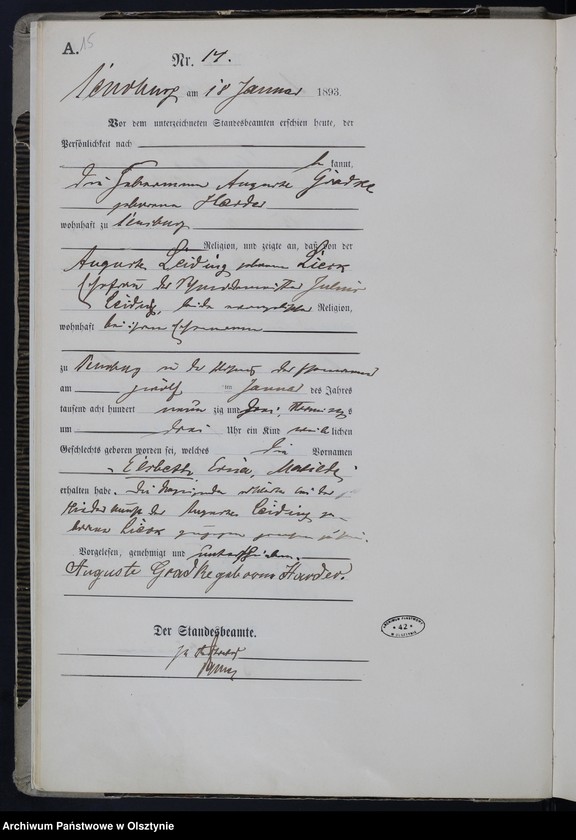 A. 15
Nr. 14.
am 18 Januar 1893.
Vor dem unterzeichneten Standesbeamten erschien heute, der
Persönlichkeit nach
be kannt,
die Hebamme Auguste Gradke
geborene Harder
wohnhaft zu
Religion, und zeigte an, daß von der
Auguste Leiding geborene Lieck
Ehefrau des Julius
Leiding, beide evangelischer Religion,
wohnhaft bei ihrem Ehemanne
zu in der Wohnung des Ehemannes
am zwölf ten Januar des Jahres
tausend acht hundert neun zig und drei, Vormittags
um drei Uhr ein Kind weib lichen
Geschlechts geboren worden sei, welches die Vornamen
Elsbeth Erica,
erhalten habe. Die Anzeigende erklärte bei der
Niederkunft der Auguste Leiding ge-
borene Lieck zugegen gewesen zu sein.
Vorgelesen, genehmigt und unterschrieben.
Auguste Gradke geborne Harder.
Der Standesbeamte.
ARCHIWUM PAŃSTWOWE
* 42 *
W OLSZTYNIE
Archiwum Państwowe w Olsztynie